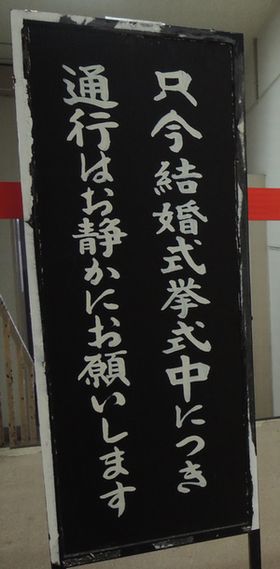 只今結婚式挙式中につき
通行はお静かにお願いします